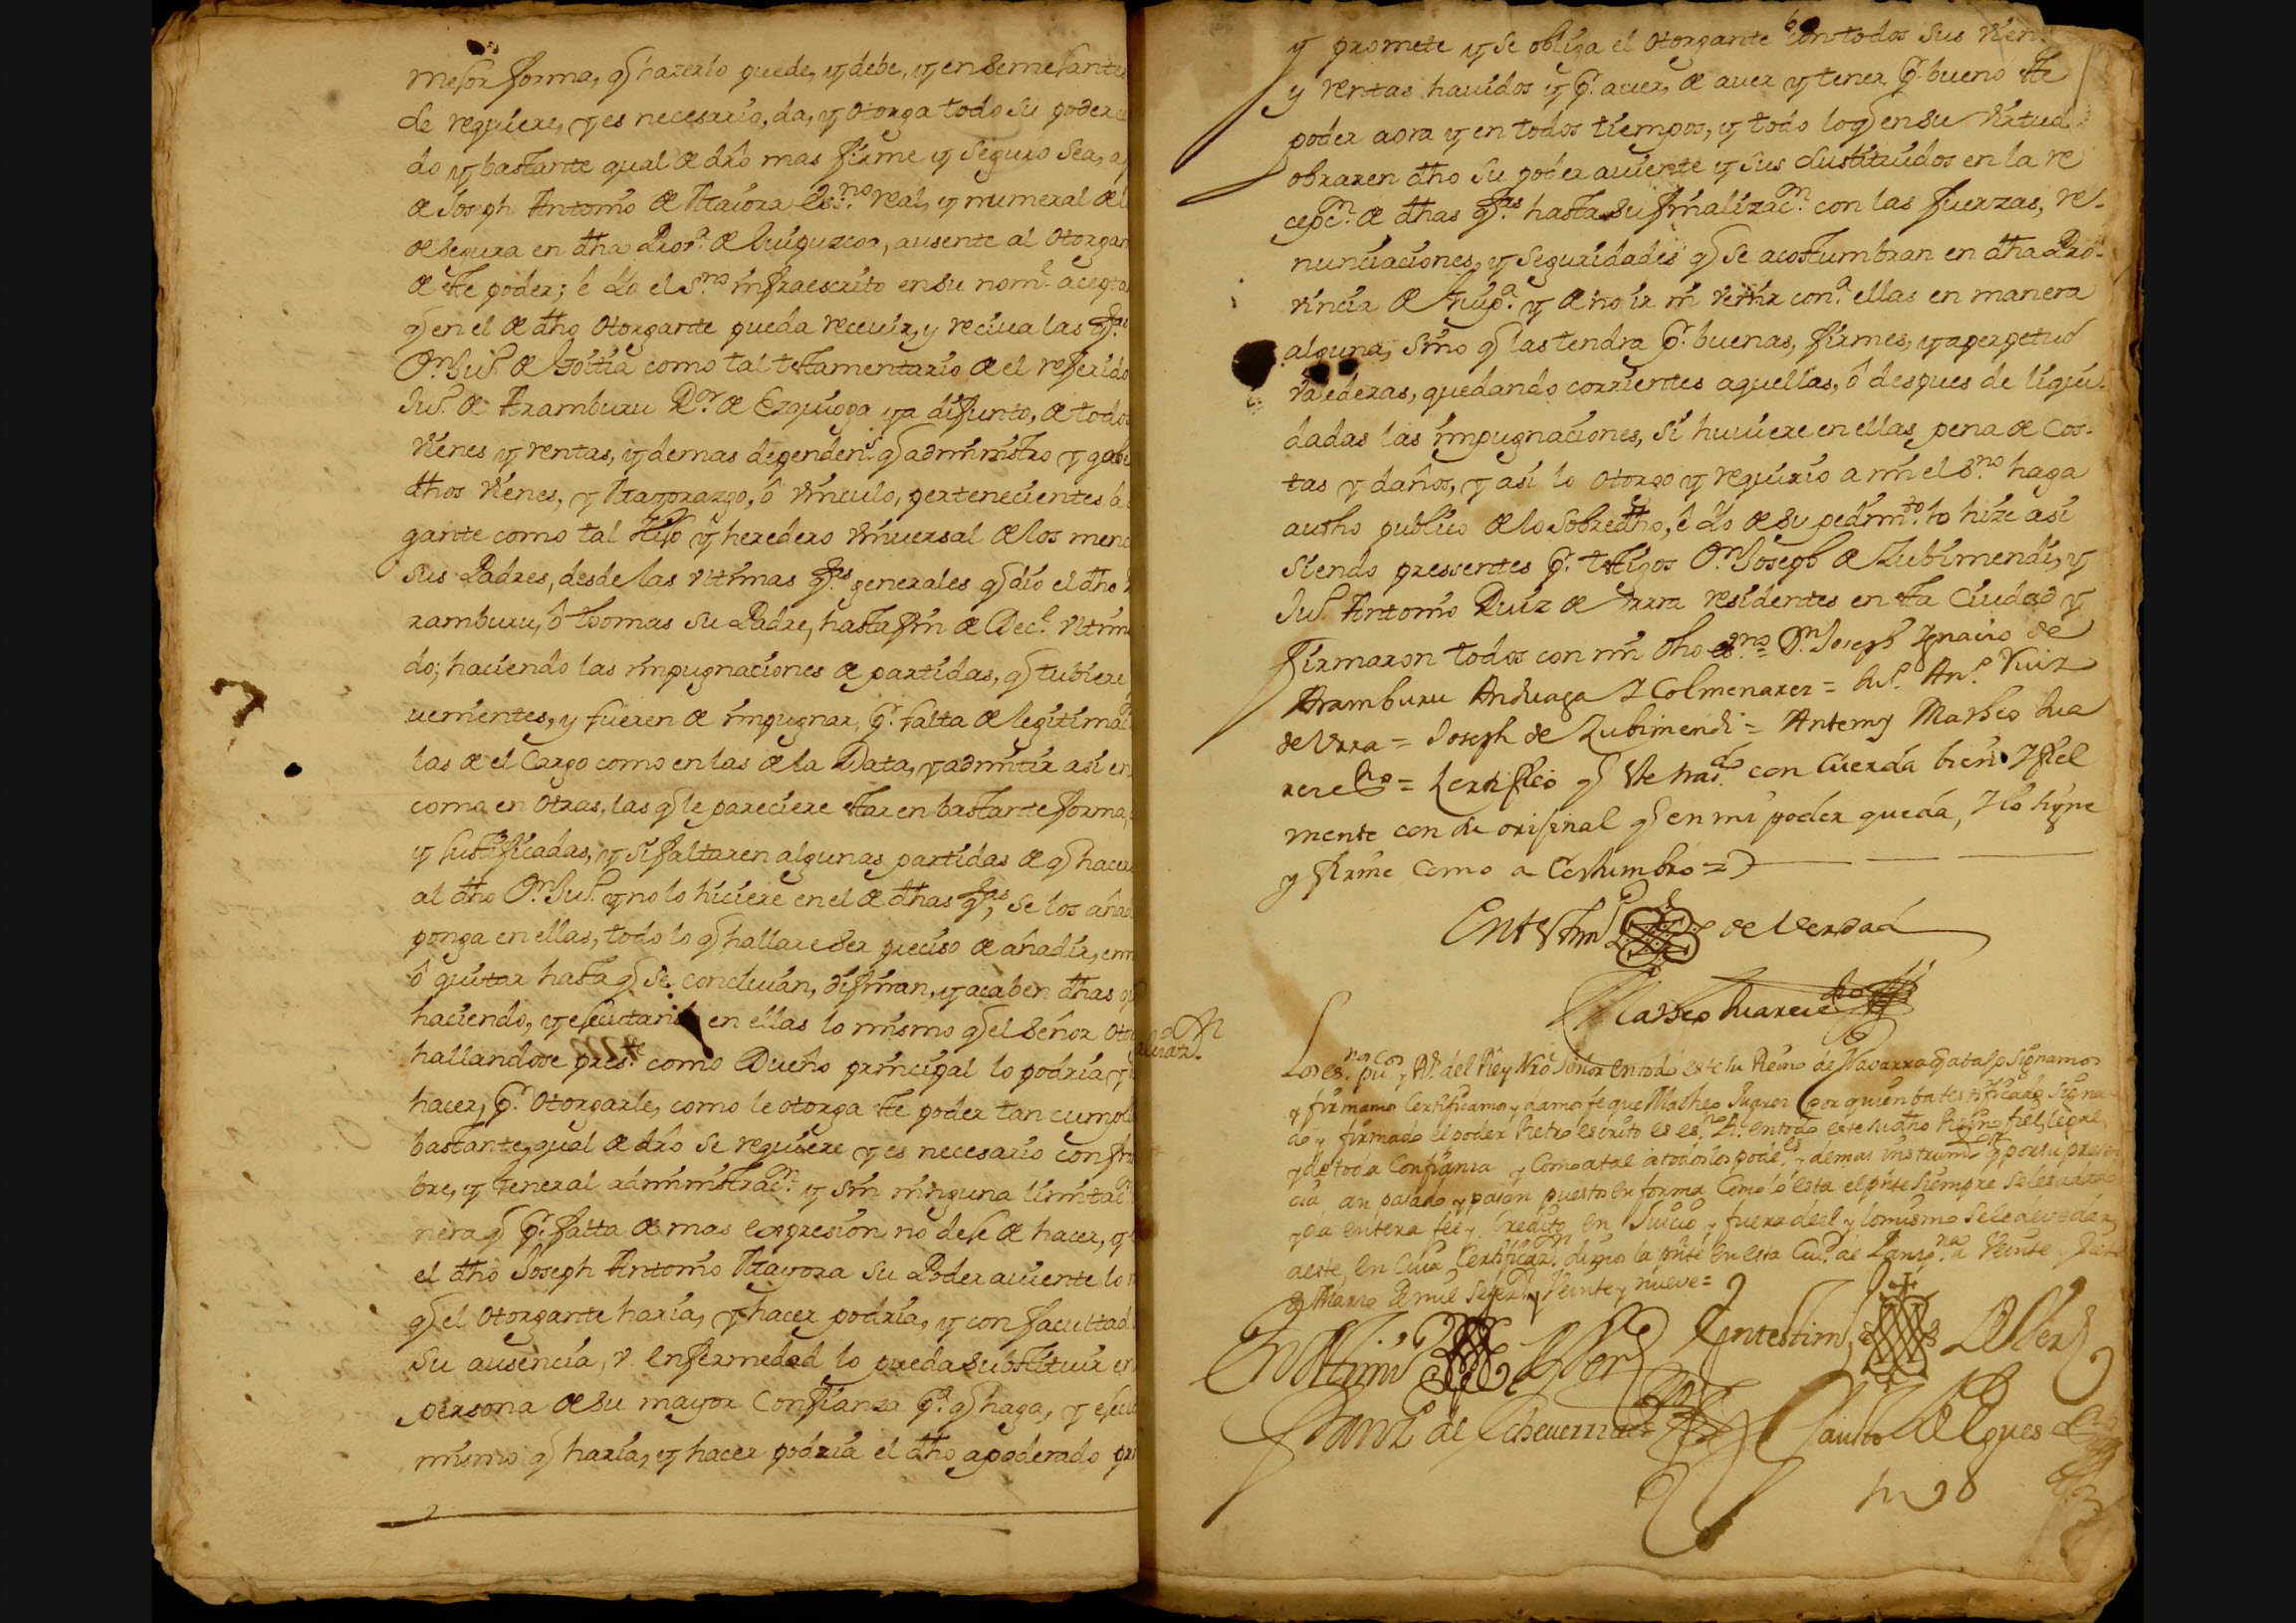 mejor forma, q̃ hazerlo puede, y debe, y en Semejante
de requiere, y es necesario, da, y otorga todo Su poder
do y bastante qual de dr̃o mas firme y Seguro Sea, a
de Joseph Antonio de Mayora Es.no real, y numeral de l
de Segura en dha Prov.a de Guipuzcoa, ausente al Otorgam
de ste poder; é Yo el S.no infraescrito en Su nom.e acepta
q̃ en el de dho Otorgante pueda recevir, y reciva las q.tas
D.n Ju.o de Goitia como tal testamentario de el referido
Ju.o de Aramburu D.or de Ezquioga ya difunto, de todos
vienes y rentas, y demas dependen.s q̃ administro y gobe
dhos vienes, y Mayorazgo, ô vinculo, pertenecientes â
gante como tal Hijo y heredero vniversal de los menc
Sus Padres, desde las vltimas q.tas generales q̃ dio el dho
ramburu, ô Thomas Su Padre, hasta fin de Dec.e vltim
do; haciendo las impugnaciones de partidas, q̃ tubiere
uenientes, y fueren de impugnar, p.r falta de legitimac
las de el Cargo como en las de la Data, y admitir asi en
como en otras, las q̃ le pareciere star en bastante forma,
y justificadas, y Si faltaren algunas partidas de q̃ hacer
al dho D.n Ju.o y no lo hiciere en el de dhas q.tas, Se los aña
ponga en ellas, todo lo q̃ hallare Ser preciso de añadir, enm
ô quitar hasta q̃ Se concluian, difinan, y acaben dhas q
haciendo, y ejecutando en ellas lo mismo q̃ el Señor Oto
hallandose pres.te como Dueño principal lo podria, y
hacer, p.r Otorgarle, como le otorga ste poder tan cumpl
bastante, qual de dr̃o Se requiere y es necesario con fra
bre, y General administrac.n y Sin ninguna limitac
nera q̃ p.r falta de mas expresion no deje de hacer, y
el dho Joseph Antonio Mayora Su Poderauiente lo
q̃ el Otorgante haria, y hacer podria, y con facultad
Su ausencia, v enfermedad lo pueda Substituir en
persona de Su mayor Confianza p.a q̃ haga, y ejecu
mismo q̃ haria, y hacer podria el dho apoderado pr
y promete y Se obliga el Otorgante con todos Sus vien
y rentas hauidos y p.r auer, de auer y tener p.r bueno ste
poder aora y en todos tiempos, y todo lo q̃ en Su virtud
obraren dho Su poder auiente y Sus Sustituidos en la re
cepc.n de dhas q.tas hasta Su finalizac.n con las fuerzas, re-
nunciaciones, y Seguridades q̃ Se acostumbran en dha Pro-
vincia de Guip.a y de no ir ni venir con.a ellas en manera
alguna, Sino q̃ las tendra p.r buenas, firmes, y a perpetuo
valederas, quedando corrientes aquellas, ô despues de liqui-
dadas las impugnaciones, Si huuiere en ellas pena de Cos-
tas y daños, y asi lo otorgo y requirio a mi el S.no haga
autho publico de lo Sobredho, ê Yo de Su pedim.to lo hize asi
Siendo pressentes p.r testigos D.n Joseph de Zubimendi, y
Ju.o Antonio Ruiz de Vrra residentes en sta Ciudad y
firmaron todos con mi dho es.no = D.n Joseph Ygnacio de
Aramburu Anduaga Y Colmenares = Ju.o An.o Ruiz
de Vrra = Joseph de Zubimendi = Antemy Matheo Sua
rez es.no = Zertifico q̃ Ste tras.do con Cuerda bien Y fiel
mente con Su orijinal q̃ en mi poder queda, Y lo Signe
y firme Como a Costumbro =
En testim.o de Verdad
Matheo Suarez
Los es.nos pu.cos y R.s del Rey Nr̃o Señor en todo este su Reino de Navarra q̃ abajo Signamos
y firmamos Certificamos y damos fe que Matheo Suarez por quien ba testificado Signa-
do y firmado el poder Retro escrito es es.no R.l en todo este su dho Reino fiel, legal,
y de toda Confianza y Como a tal a todos los pode.es y demas instrum.s q̃ por su presen
cia an pasado y pasan puestos en forma Como lo esta el pñte Siempre Se les a dado
y da entera fee y Credito en Juicio y fuera del y lo mismo Se le deve dar
a este, en Cuia Certificaz.n dimos la pñte en esta Ciu.d de Panp.na a Veinte y Siete
de Marzo de mil Setez.s y Veinte y nueve =
En testim.o de Ver.d
En testim.o de Ver.d
Fran.co de Echeverria